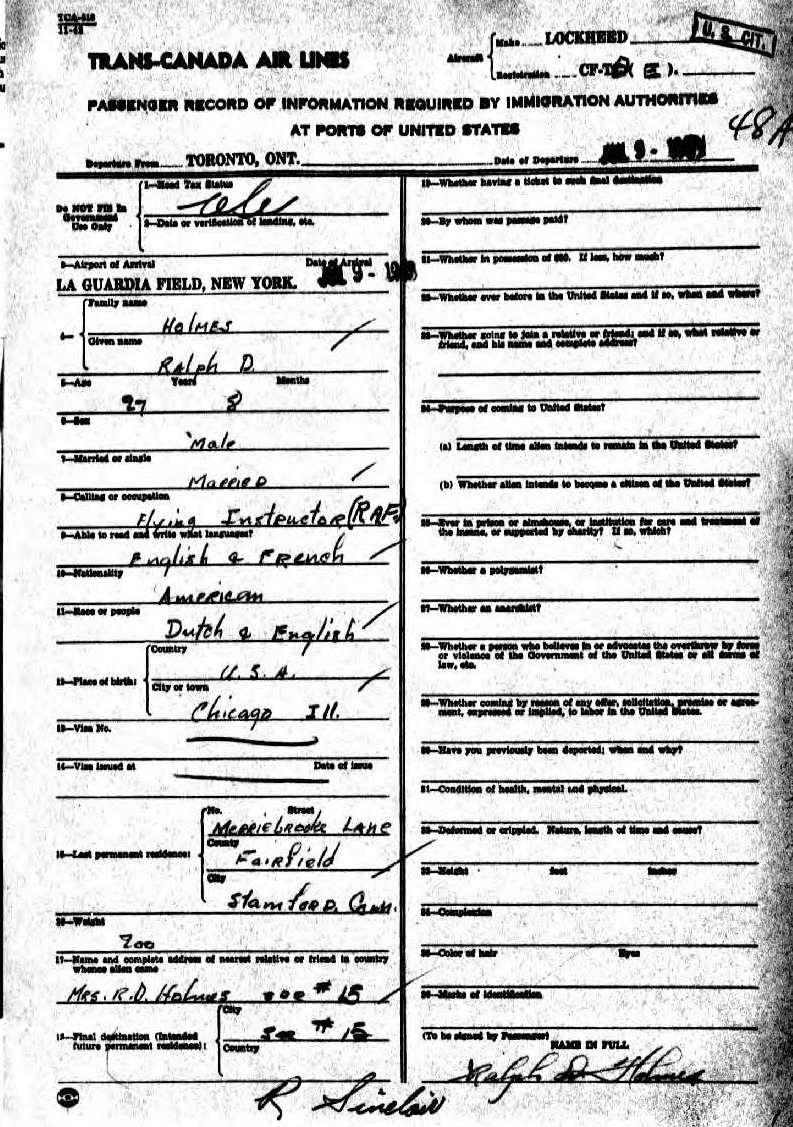 TCA-818
11-42
U. S. CIT.
TRANS-CANADA AIR LINES
Aircraft
Make LOCKHEED
Registration CF-T
PASSENGER RECORD OF INFORMATION REQUIRED BY IMMIGRATION AUTHORITIES
AT PORTS OF UNITED STATES
48A
Departure From TORONTO, ONT.
Date of Departure 9 -
Do NOT Fill In
Government
Use Only
1—Head Tax Status
2—Date or verification of landing, etc.
3—Airport of Arrival Date of Arrival
LA GUARDIA FIELD, NEW YORK. 9 -
4—
Family name
HOLMES
Given name
Ralph D.
5—Age Years Months
27 8
6—Sex
Male
7—Married or single
Married
8—Calling or occupation
Flying Instructor (RAF)
9—Able to read and write what languages?
English & French
10—Nationality
American
11—Race or people
Dutch & English
12—Place of birth:
Country
U. S. A.
City or town
Chicago Ill.
13—Visa No.
14—Visa issued at Date of issue
15—Last permanent residence:
No. Street
Merriebrooke Lane
County
Fairfield
City
Stamford, Conn.
16—Weight
200
17—Name and complete address of nearest relative or friend in country
whence alien came
Mrs. R.D. Holmes see # 15
18—Final destination (Intended
future permanent residence):
City
see # 15
Country
19—Whether having a ticket to such final destination
20—By whom was passage paid?
21—Whether in possession of $50. If less, how much?
22—Whether ever before in the United States and if so, when and where?
23—Whether going to join a relative or friend; and if so, what relative or
friend, and his name and complete address?
24—Purpose of coming to United States?
(a) Length of time alien intends to remain in the United States?
(b) Whether alien intends to become a citizen of the United States?
25—Ever in prison or almshouse, or institution for care and treatment of
the insane, or supported by charity? If so, which?
26—Whether a polygamist?
27—Whether an anarchist?
28—Whether a person who believes in or advocates the overthrow by force
or violence of the Government of the United States or all forms of
law, etc.
29—Whether coming by reason of any offer, solicitation, promise or agree-
ment, expressed or implied, to labor in the United States.
30—Have you previously been deported; when and why?
31—Condition of health, mental and physical.
32—Deformed or crippled. Nature, length of time and cause?
33—Height feet inches
34—Complexion
35—Color of hair Eyes
36—Marks of identification
(To be signed by Passenger)
NAME IN FULL
Ralph D Holmes
R Sinclair